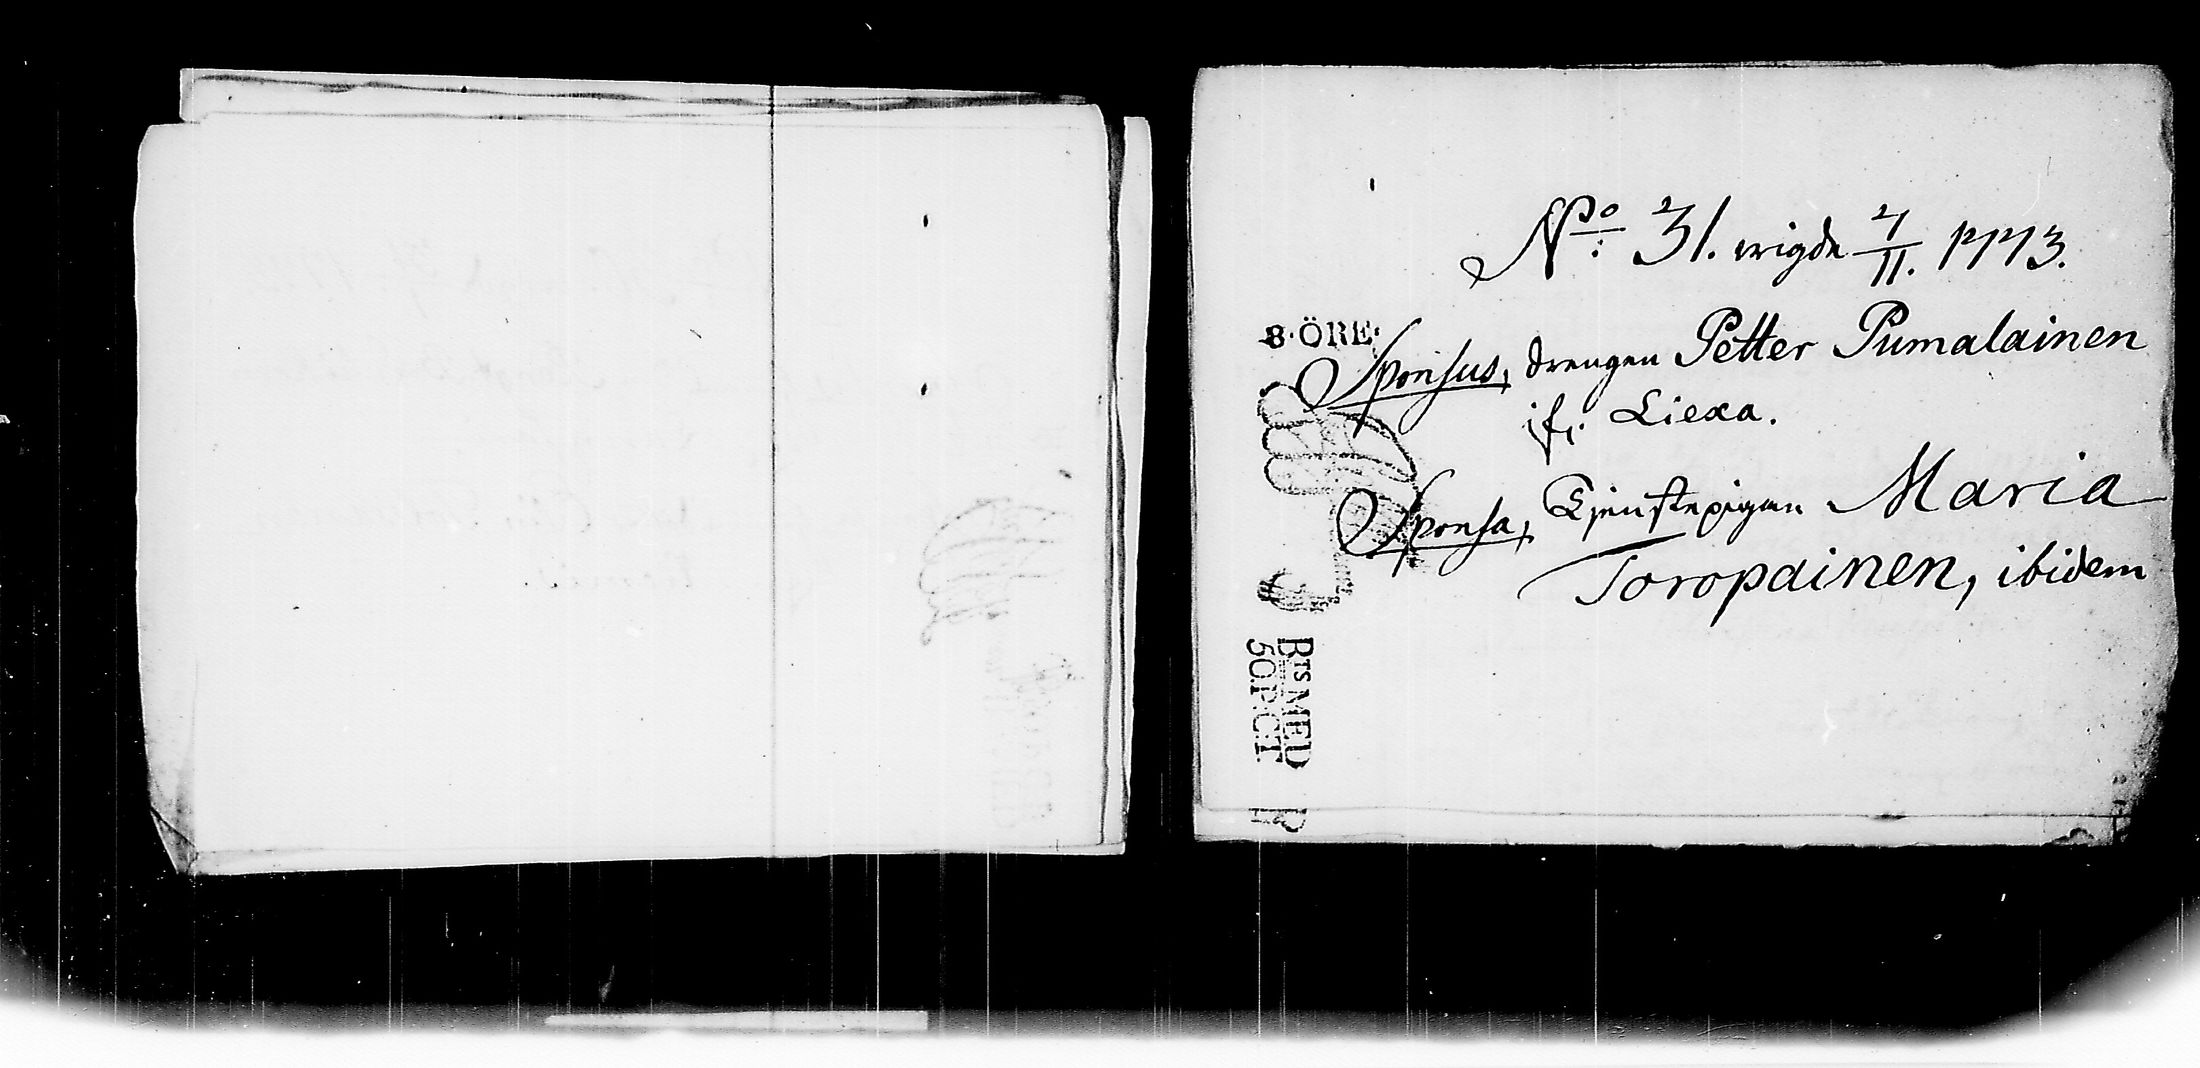 No: 31. wigde 7/11. 1773.
8·ÖRE·
Sponsus, drengen Petter Pumalainen
ifr. Liexa.
Sponsa, Tjenstepigan Maria
Toropainen, ibidem
BTS MED
50.P:CT.